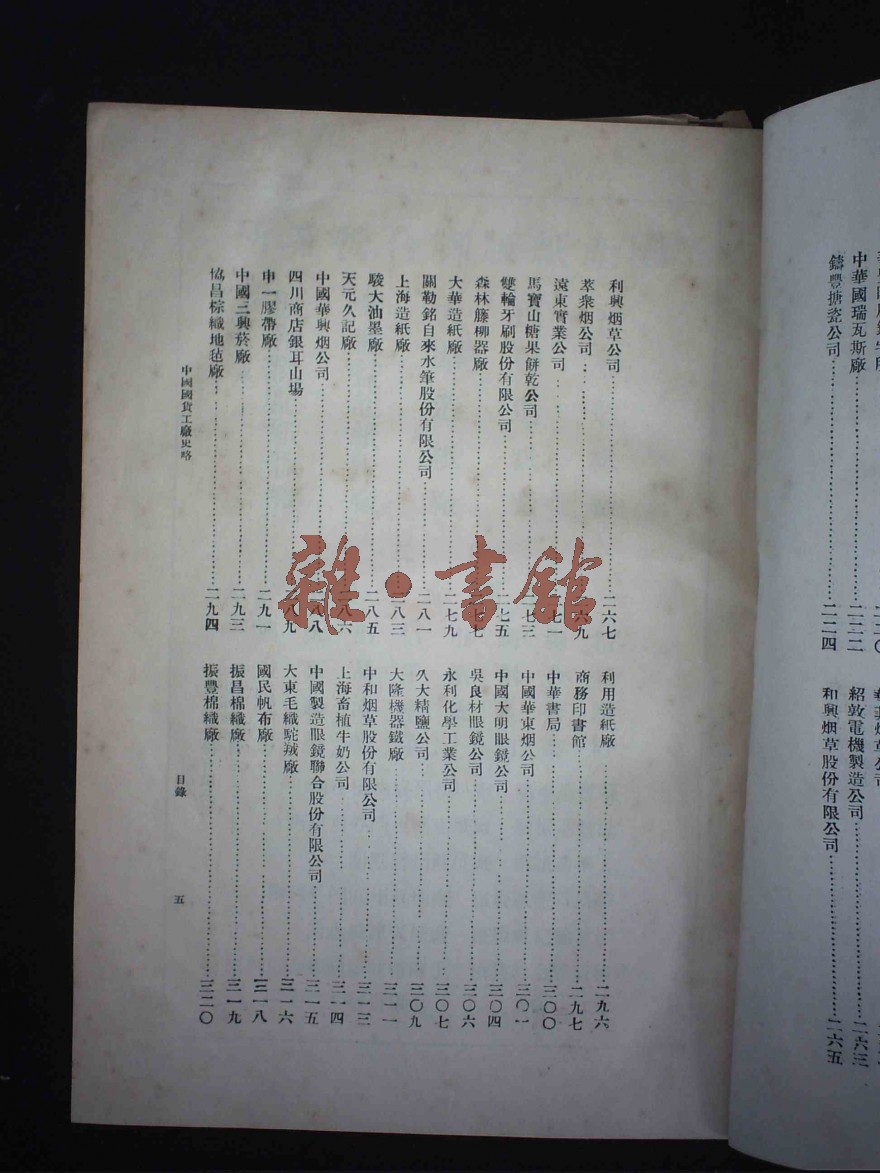 中華國瑞瓦斯廠……二二二
鑄豐搪瓷公司……二二四
紹敦電機製造公司……二六三
和興烟草股份有限公司……二六五
利興烟草公司……二六七
萃衆烟公司……六九
遠東實業公司……七一
馬寶山糖果餅乾公司……七三
雙輪牙刷股份有限公司……七五
森林籐柳器廠……七七
大華造紙廠……二七九
關勒銘自來水筆股份有限公司……二八一
上海造紙廠……二八三
駿大油墨廠……二八五
天元久記廠……八六
中國華興烟公司……八八
四川商店銀耳山場……八九
申一膠帶廠……二九一
中國三興菸廠……二九三
協昌棕織地毡廠……二九四
利用造紙廠……二九六
商務印書館……二九七
中華書局……三〇〇
中國華東烟公司……三〇一
中國大明眼鏡公司……三〇四
吳良材眼鏡公司……三〇六
永利化學工業公司……三〇七
久大精鹽公司……三〇九
大隆機器鐵廠……三一一
中和烟草股份有限公司……三一三
上海畜植牛奶公司……三一四
中國製造眼鏡聯合股份有限公司……三一五
大東毛織駝羢廠……三一六
國民帆布廠……三一八
振昌棉織廠……三一九
振豐棉織廠……三二〇
中國國貨工廠史略
目錄
五
雜·書館